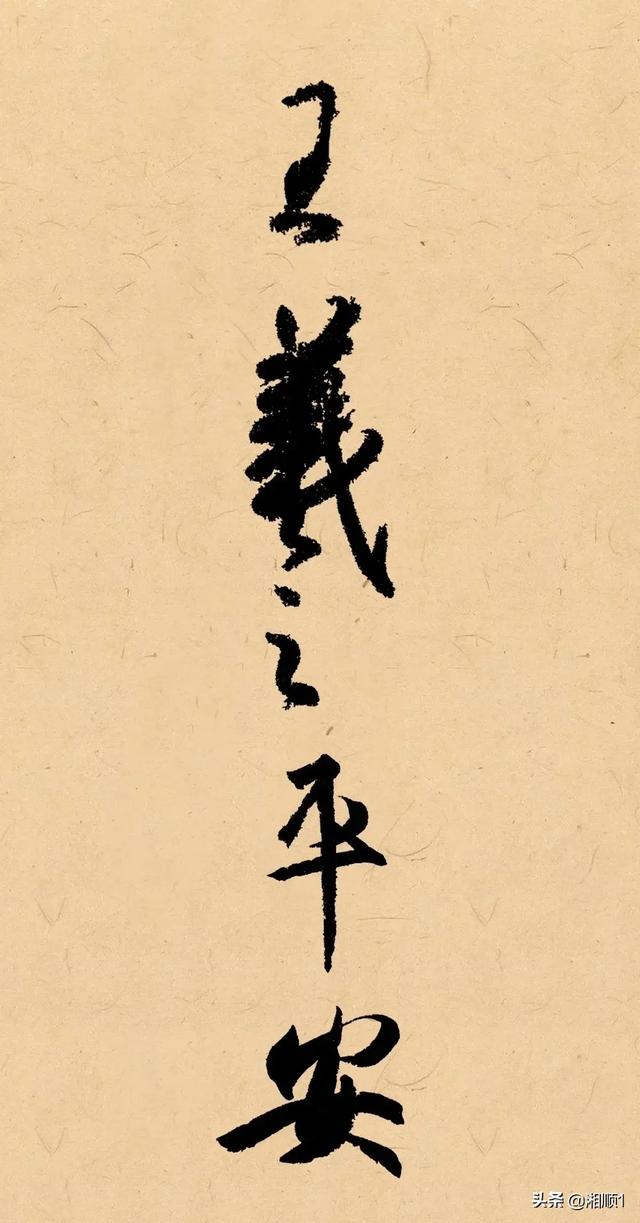 王羲之平安
头条 @湘顺1